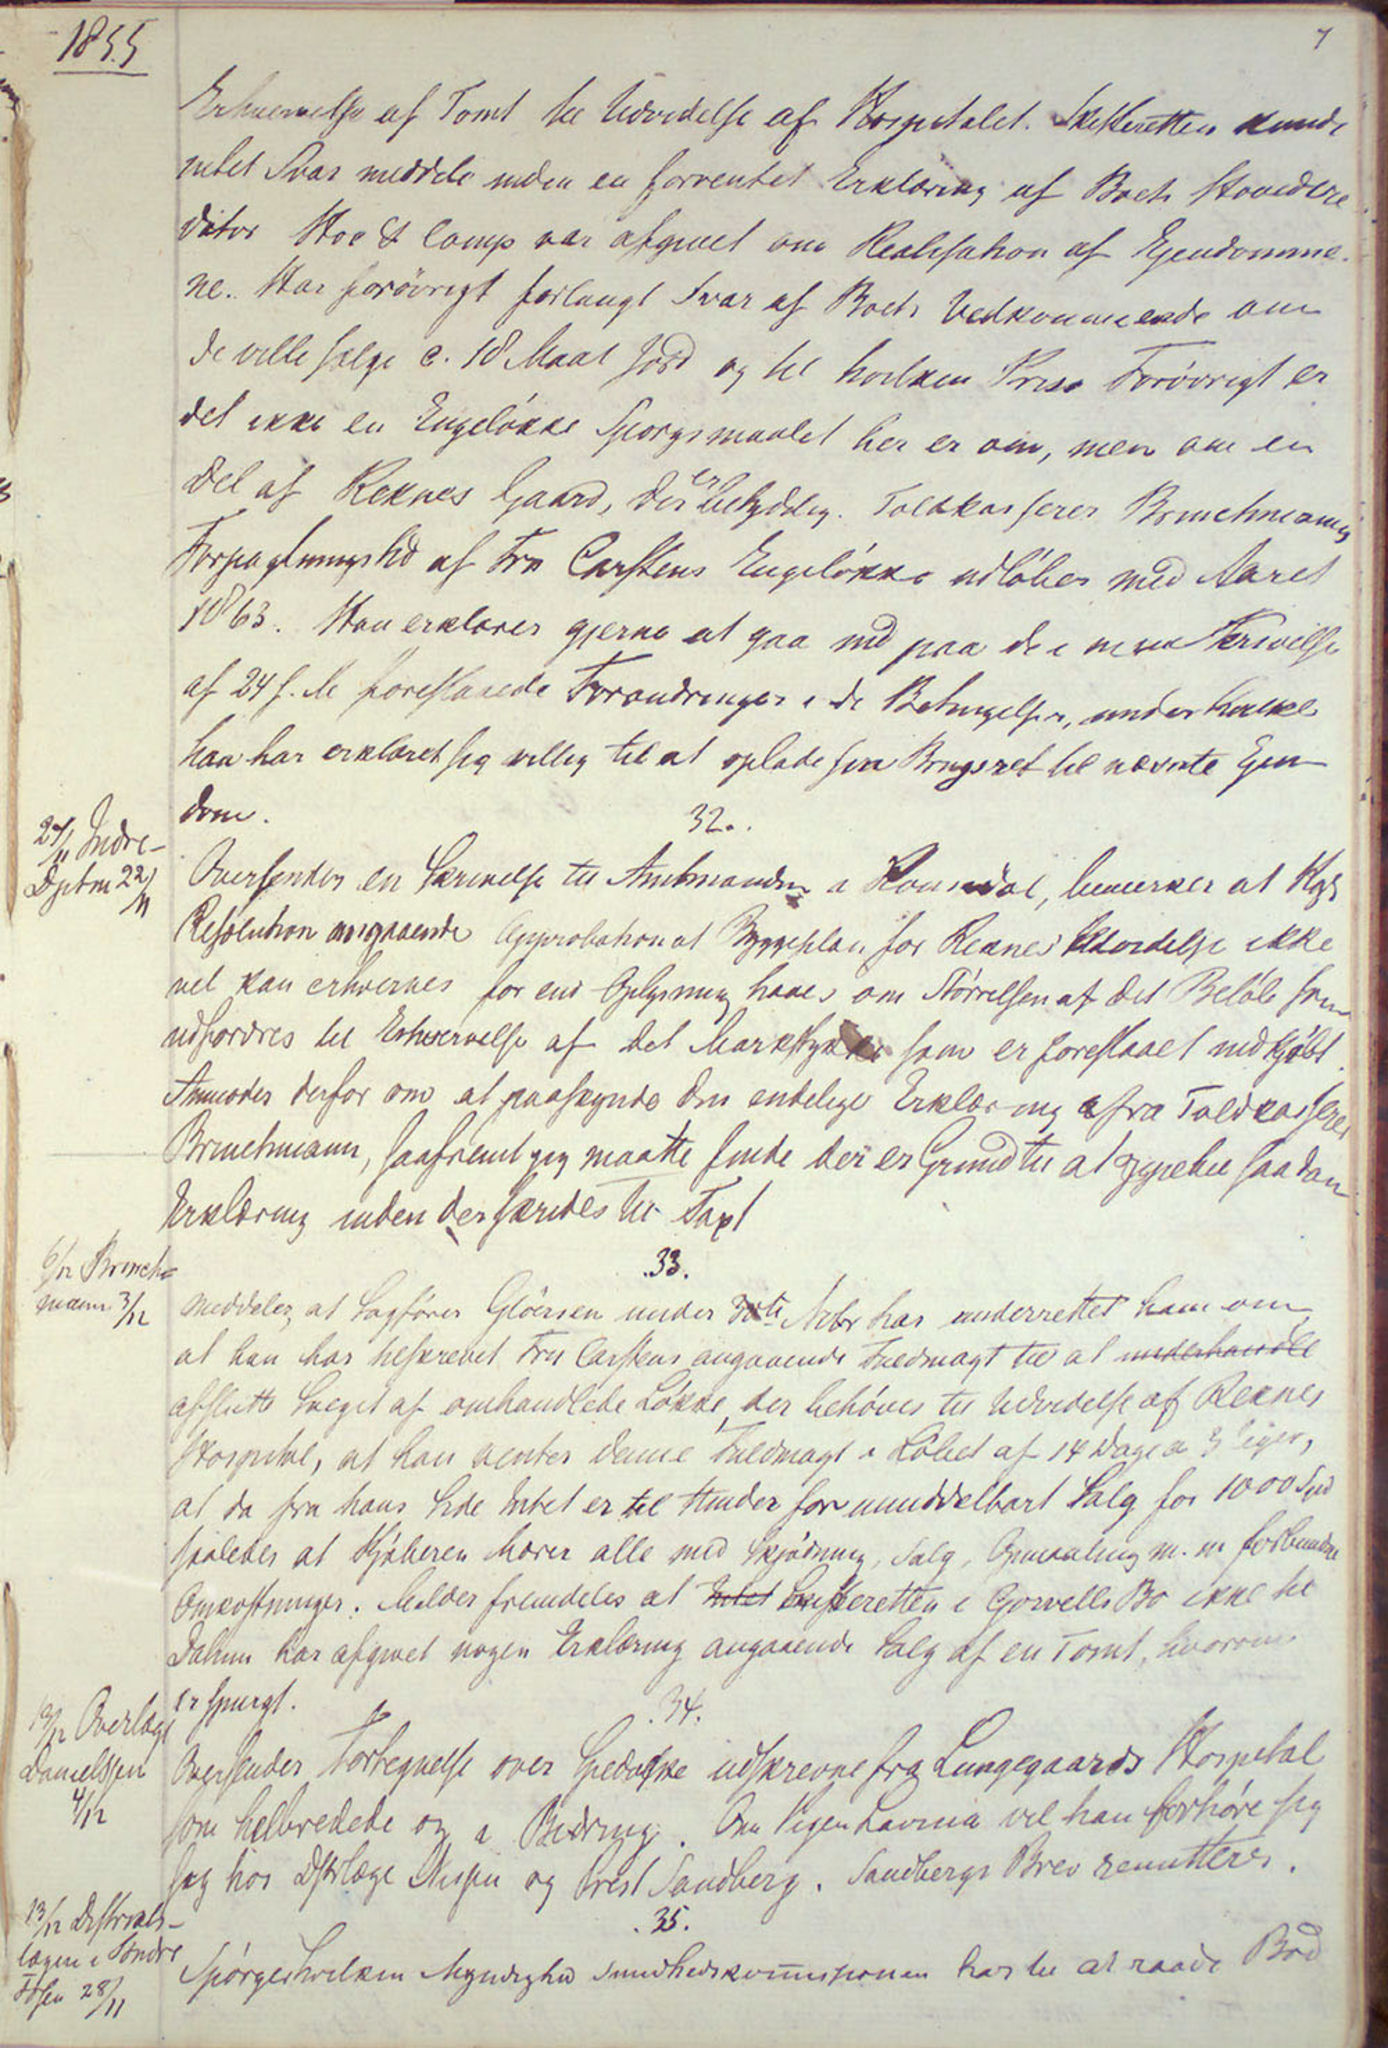 1855
7
Erhvervelse af Tomt til Udvidelse af Hospitalet. Skifteretten kunde
intet Svar meddele inden en forventet Erklæring af Boets Hovedcre
ditor Hoe & Comp var afgivet om Realisation af Ejendomme-
ne. Har forøvrigt forlangt Svar af Boets Vedkommende om
de ville sælge c. 18 Maal Jord og til hvilken Priis. Forøvrigt er
det ikke en Engeløkke Spørgsmaalet her er om, men om en
del af Reknes Gaard, der er betydelig. Toldkasserer Brinchmanns
Forpagtningstid af Fru Carstens Engeløkke udløber med Aaret
1863. Han erklærer gjerne at gaa ind paa de i min Skrivelse
af 24 f. M foreslaaede Forandringer i de Betingelser, under hvilke
han har erklæret sig villig til at oplade sin Brugsret til nævnte Ejen-
dom.
32.
27/11 Indre-
Dptm 22/11
Oversender en Skrivelse til Amtmanden i Romsdal, bemærker at Kgl
Resolution angaaende Approbation at Byggeplan for Reknes Udvidelse ikke
vel kan erhverves før end Oplysning haves om Størrelsen af det Beløb som
udfordres til Erhvervelse af det Markstykke som er foreslaaet indkjøbt.
Anmoder derfor om at paaskynde den endelige Erklæring fra Toldkasserer
Brinchmann, saafremt jeg maatte finde der er Grund til at oppebie saadan
Erklæring inden der skrides til Taxt
33.
6/12 Brinch-
mann 3/12
meddeler, at Sagfører Gløersen under 30te Nvbr har underrettet ham om
at han har tilskrevet Fru Carstens angaaende Fuldmagt til at underhandle
afslutte Salget af omhandlede Løkke, der behøves til Udvidelse af Reknes
Hospital, at han venter denne Fuldmagt i Løbet af 14 Dage a 3 Uger,
at da fra hans Side Intet er til Hinder for umiddelbart Salg for 1000 Spd
saaledes at Kjøberen bærer alle med Skjødning, Salg, Opmaaling m. m forbundne
Omkostninger. Melder fremdeles at Intet Skifteretten i Gørvells Bo ikke til
Datum har afgivet nogen Erklæring angaaende Salg af en Tomt, hvorom
er spurgt.
34.
13/12 Overlæge
Danielssen
4/12
Oversender Fortegnelse over Spedalske udskrevne fra Lungegaards Hospital
som helbredede og i Bedring. Om Pigen Lavinia vil han forhøre sig
sig hos Dstrlæge og Prest Sandberg. Sandbergs Brev remitteres.
35.
13/12 Distrikts-
lægen i Søndre
Fosen 28/11
Spørger hvilken Myndighed Sundhedskommissionen har til at raade Bod